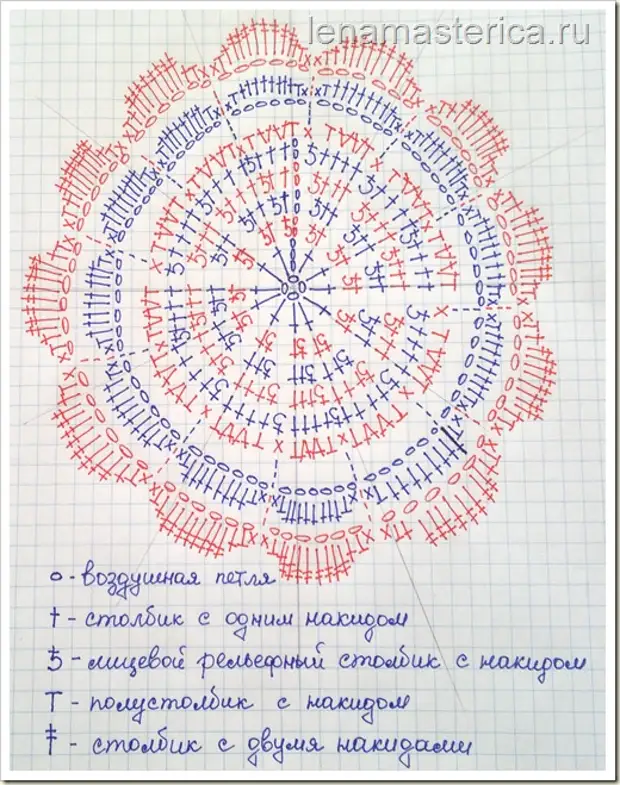 lenamasterica.ru
о - воздушная петля
† - столбик с одним накидом
5 - лицевой рельефный столбик с накидом
Т - полустолбик с накидом
‡ - столбик с двумя накидами